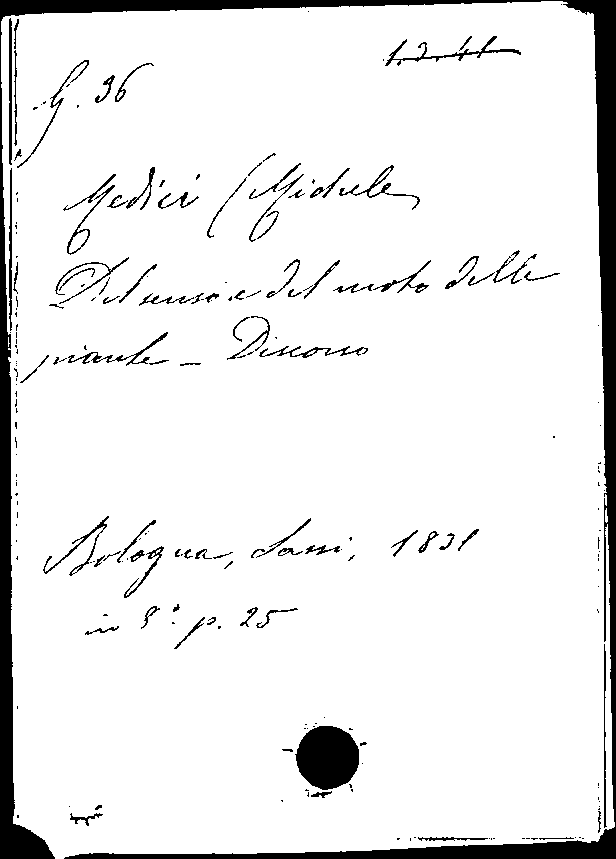 1.2.41
G. 36
Medici (Michele
Del senso e del moto delle
piante - Discorso
Bologna, Sassi, 1831
in 8° p. 25